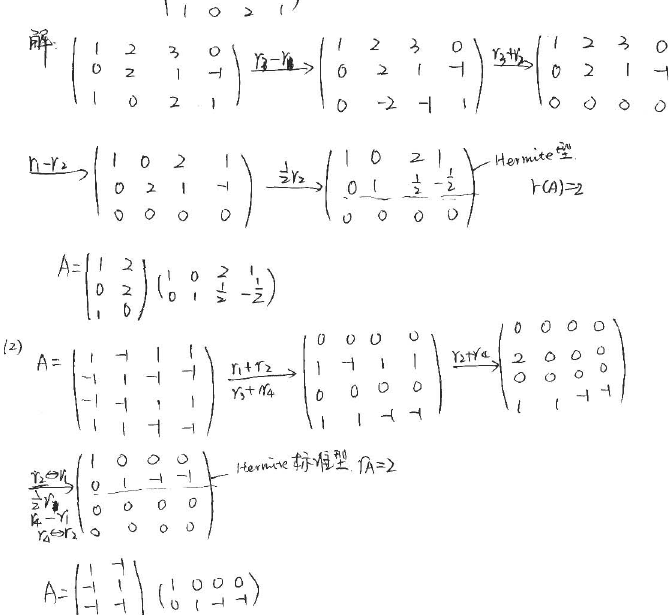 1 0 2 1
解:
( 1 2 3 0 ; 0 2 1 -1 ; 1 0 2 1 ) r₃-r₁→ ( 1 2 3 0 ; 0 2 1 -1 ; 0 -2 -1 1 ) r₃+r₂→ ( 1 2 3 0 ; 0 2 1 -1 ; 0 0 0 0
r₁-r₂→ ( 1 0 2 1 ; 0 2 1 -1 ; 0 0 0 0 ) ½r₂→ ( 1 0 2 1 ; 0 1 ½ -½ ; 0 0 0 0 ) Hermite型 r(A)=2
A= ( 1 2 ; 0 2 ; 1 0 ) ( 1 0 2 1 ; 0 1 ½ -½ )
(2) A= ( 1 -1 1 1 ; -1 1 -1 -1 ; -1 -1 1 1 ; 1 1 -1 -1 ) r₁+r₂ r₃+r₄→ ( 0 0 0 0 ; 1 -1 1 1 ; 0 0 0 0 ; 1 1 -1 -1 ) r₂+r₄→ ( 0 0 0 0 ; 2 0 0 0 ; 0 0 0 0 ; 1 1 -1 -1 )
r₂↔r₁ ½r₁ r₄-r₁ r₄↔r₂→ ( 1 0 0 0 ; 0 1 -1 -1 ; 0 0 0 0 ; 0 0 0 0 ) Hermite标准型 rA=2
A= ( 1 -1 ; -1 1 ; -1 -1 ( 1 0 0 0 ; 0 1 -1 -1 )